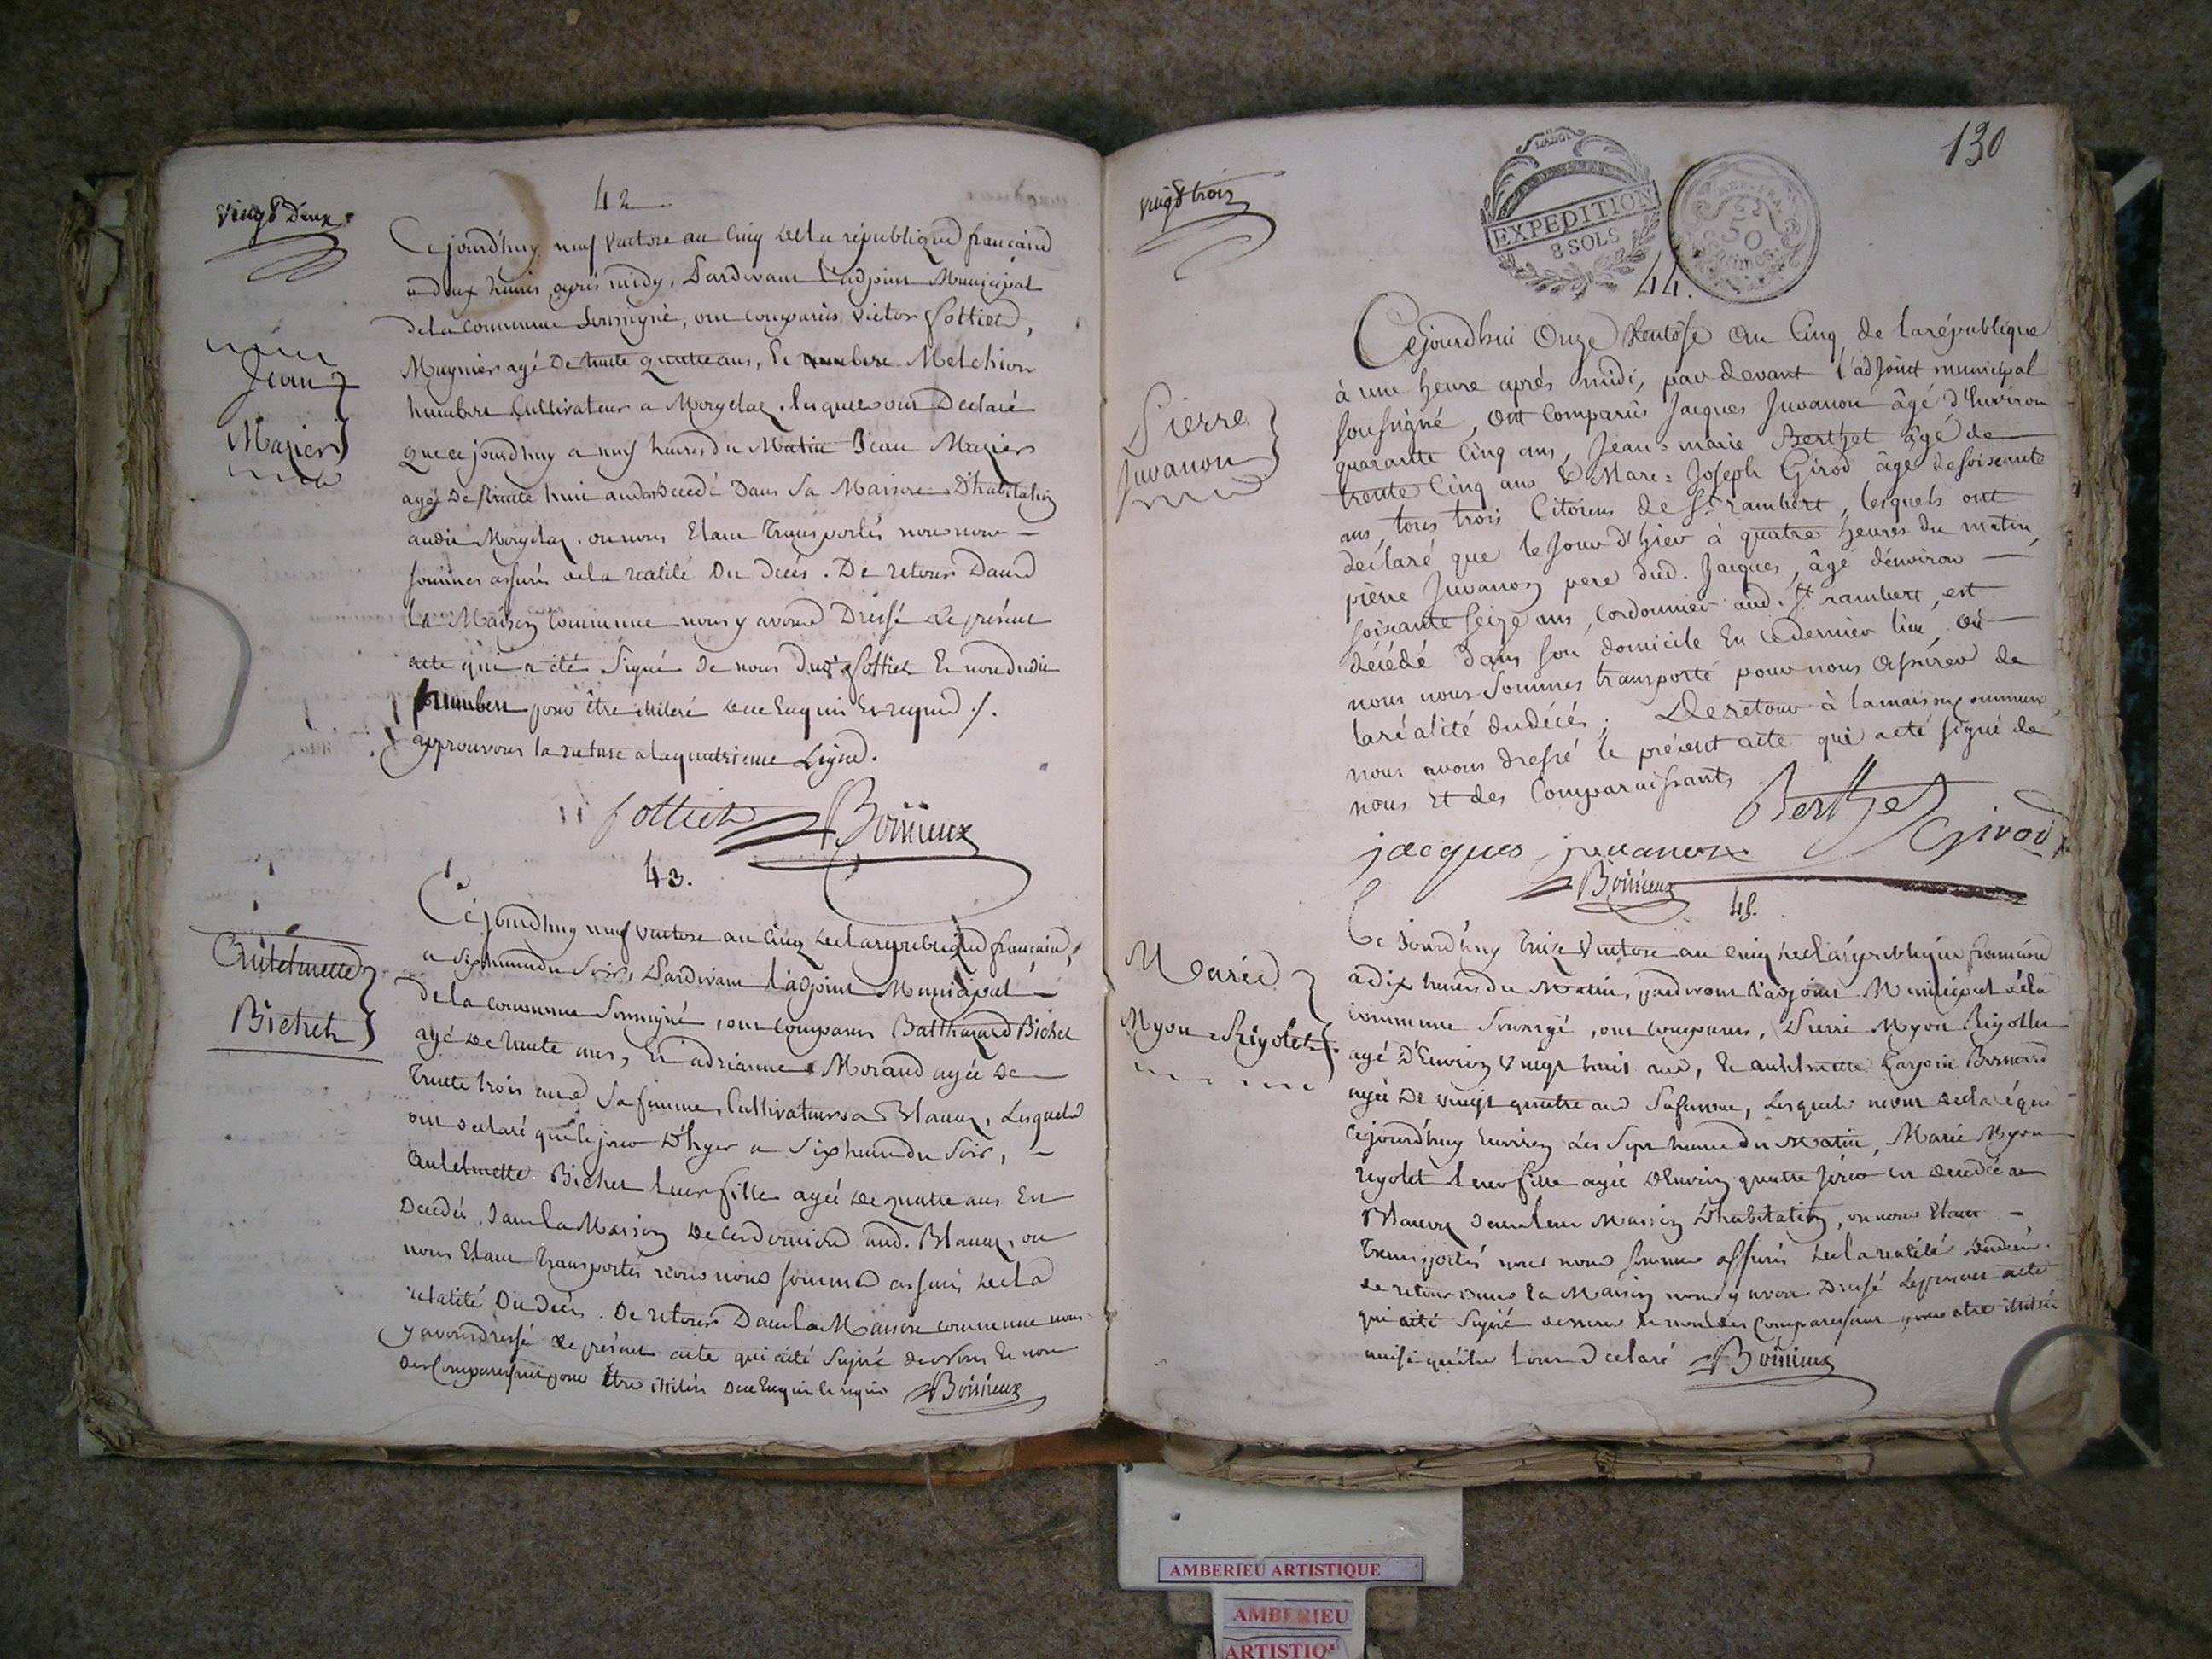 vingt deux
42
Cejourd'huy neuf Ventose an Cinq de la républiqued françaised
a deux heures après midy, Pardevant l'adjoint Municipal
de la Commune Soussigné, ont comparus Victor Sottiet,
Magnier agé de trente quatre ans, Et Melchior
humbert Cultivateur a Morgelaz, lesquels ont Declaré
que cejourd'huy a neuf heures du Matin Jean Mazier
agé De trente huit ans Decedé Dans Sa Maison D'habitation
audit Morgelaz, ou nous Etant Transportés nous nous
sommes assurés de la réalité Du Decés. De retour Dans
la Maison Commune nous y avons Dressé Le présent
acte qui a été Signé De nous Dud. Sottiet Et non dudit
humbert pour être illiteré de ce Enquis Et requis ./.
approuvons la rature a la quatrieme Ligne.
Jean
Mazier
Sottiet Boisieux
43.
Cejourd'huy neuf Ventose an Cinq de la republique francaise,
a Six heures du Soir, Pardevant l'adjoint Municipal
de la commune Soussigné, ont comparus Balthazard Bichet
agé de trente ans, Et adrianne Morand agée De
Trente trois ans Sa femme, Cultivateurs a Blanaz, Lesquels
ont declaré que le jour D'hyer a Six heures du Soir,
Antelmette Bichet leur fille agée de quatre ans Est
Decedée Dans la Maison De ces Derniers aud. Blanaz, ou
nous Etant transportés nous nous sommes assurés de la
réalité Du Decés. De retour Dans la Maison commune nous
y avons dressé Le présent acte qui a été Signé de nous Et non
des Comparaissants pour être illiterés De ce Enquis Et requis Boisieux
Antelmette
Bichet
130
vingt trois
EXPEDITION
8 SOLS
REP. FRA.
50
Centimes
44.
Cejourd'hui Onze Ventôse an Cinq de la république
à une heure aprés midi, par devant l'adjoint municipal
soussigné, ont comparûs Jacques Juvanon âgé d'environ
quarante Cinq ans, Jean=marie Berthet âgé de
trente Cinq ans & Marc=Joseph Girod âgé de soixante
ans, tous trois Citoiens de St rambert, lesquels ont
déclaré que le jour d'hier à quatre heures du matin,
pierre Juvanon pere dud. Jacques, âgé d'environ
soixante seize ans, Cordonnier aud. St rambert, est
décédé dans son domicile En ce dernier lieu, où
nous nous sommes transporté pour nous assurer de
la réalité du décés; De retour à la maison commune,
nous avons dressé le présent acte qui a eté signé de
nous et des Comparaissants
Pierre
Juvanon
Berthet
jacques juvanon Girod
Boisieux
45.
Cejourd'huy Treize Ventose an cinq de la république francaise
a dix heures du Matin, pardevant l'adjoint Municipal de la
commune Soussigé, ont comparus, Pierre Myon Rigollet
agé D'Environ Vingt huit ans, Et anthelmette Bernard
agée De vingt quatre ans Sa femme, Lesquels nous ont declaré que
Cejourd'huy Environ Les Sept heures du Matin, Marie Myon
Rigolet leur fille agée D'Environ quatre jours est decedée a
Blanaz dans leur Maison D'habitation, ou nous Etant
Transportés nous nous sommes assurés de la réalité du decés.
de retour dans la Maison nous y avons Dressé Le present acte
qui a été Signé de nous Et non des Comparaissants pour etre illiterés
ainsi qu'ils l'ont Declaré Boisieux
Marie
Myon=Rigolet
AMBERIEU ARTISTIQUE
AMBERIEU
ARTISTIQ